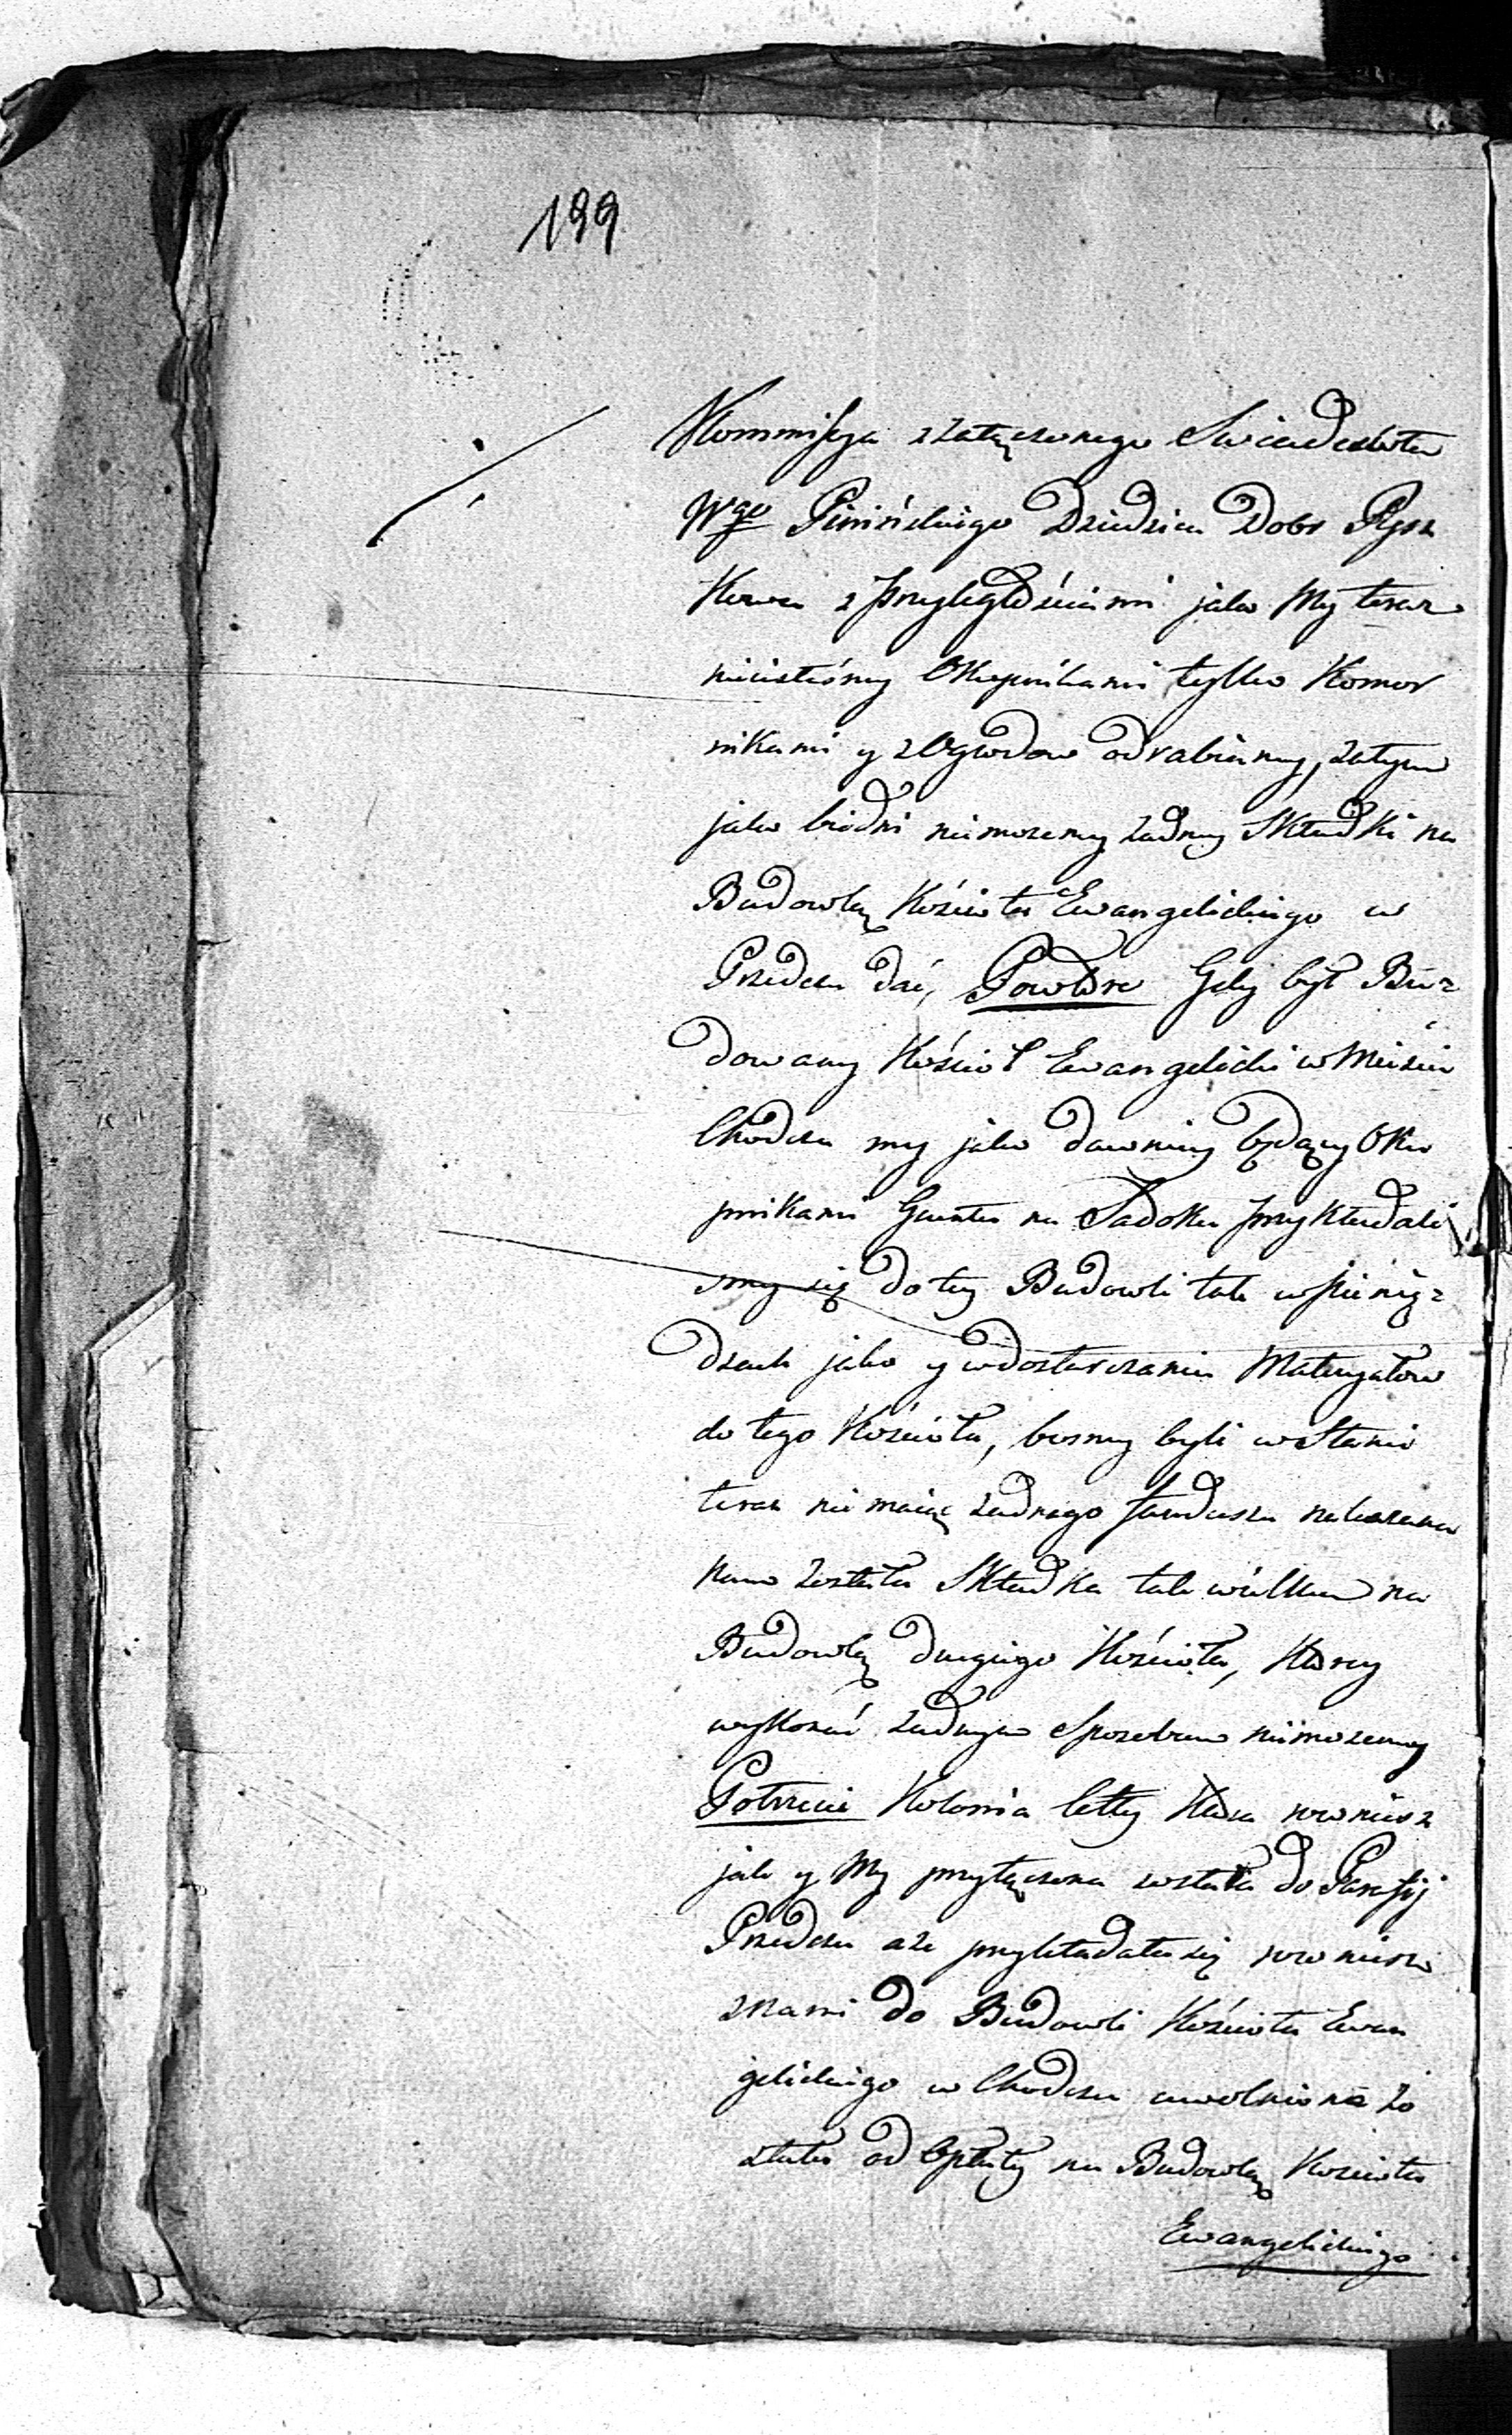 199
Kommissya z załączonego Swiadectwa
Wgo Pinińskiego Dziedzica Dobr Pysz
kowa z przyległościami jako My teraz
niiestésmy Okupnikami tylko Komor
nikami y z Ogrodow odrabiamy, zatym
jako biedni niemozemy żadney Składki na
Budowlą Kościoła Ewangelickiego w
Przedczu dać, Powtóre Gdy był Bu=
dowany Kościoł Ewangelicki w Mieście
Chodczu my jako dawniey będący Oku
pnikami Gruntu na Sadoku przykładali
smy się do tey Budowli tak w pienią=
dzach jako y w dostarczaniu Materyałow
do tego Kościoła, bosmy byli w Stanie
teraz nie maiąc żadnego funduszu nakazana
nam została Składka tak wielka na
Budowlą drugiego Kościoła, ktorey
wykonać żadnym Sposobem niemozemy
Potrzecie Kolonia Cetty ktora rownież
jak y My przyłączona została do Parafij
Przedcza aże przykładała się rownież
z nami do Budowli Kościoła Ewan
gelickiego w Chodczu uwolniona zo
stała od Opłaty na Budowlą Koscioła
Ewangelickiego